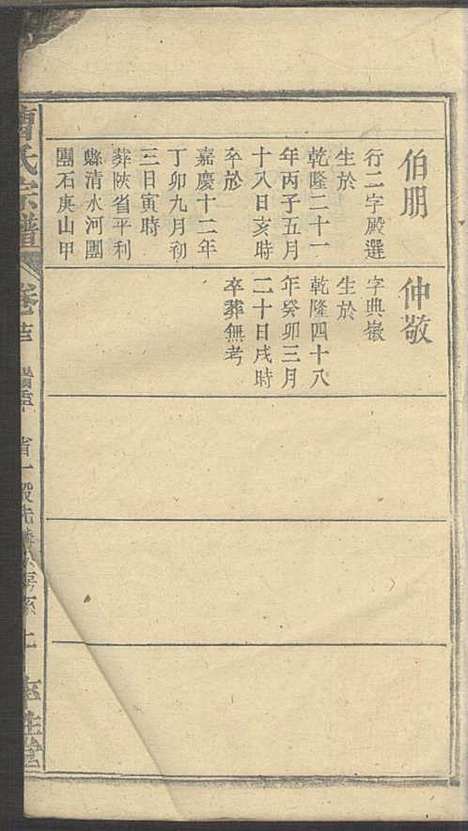 伯朋
行二字殿選
生於
乾隆二十一
年丙子五月
十八日亥時
卒於
嘉慶十二年
丁卯九月初
三日寅時
葬陝省平利
縣清水河團
團石庚山甲
仲敬
字典嶶
生於
乾隆四十八
年癸卯三月
二十日戌時
卒葬無考
氏宗譜